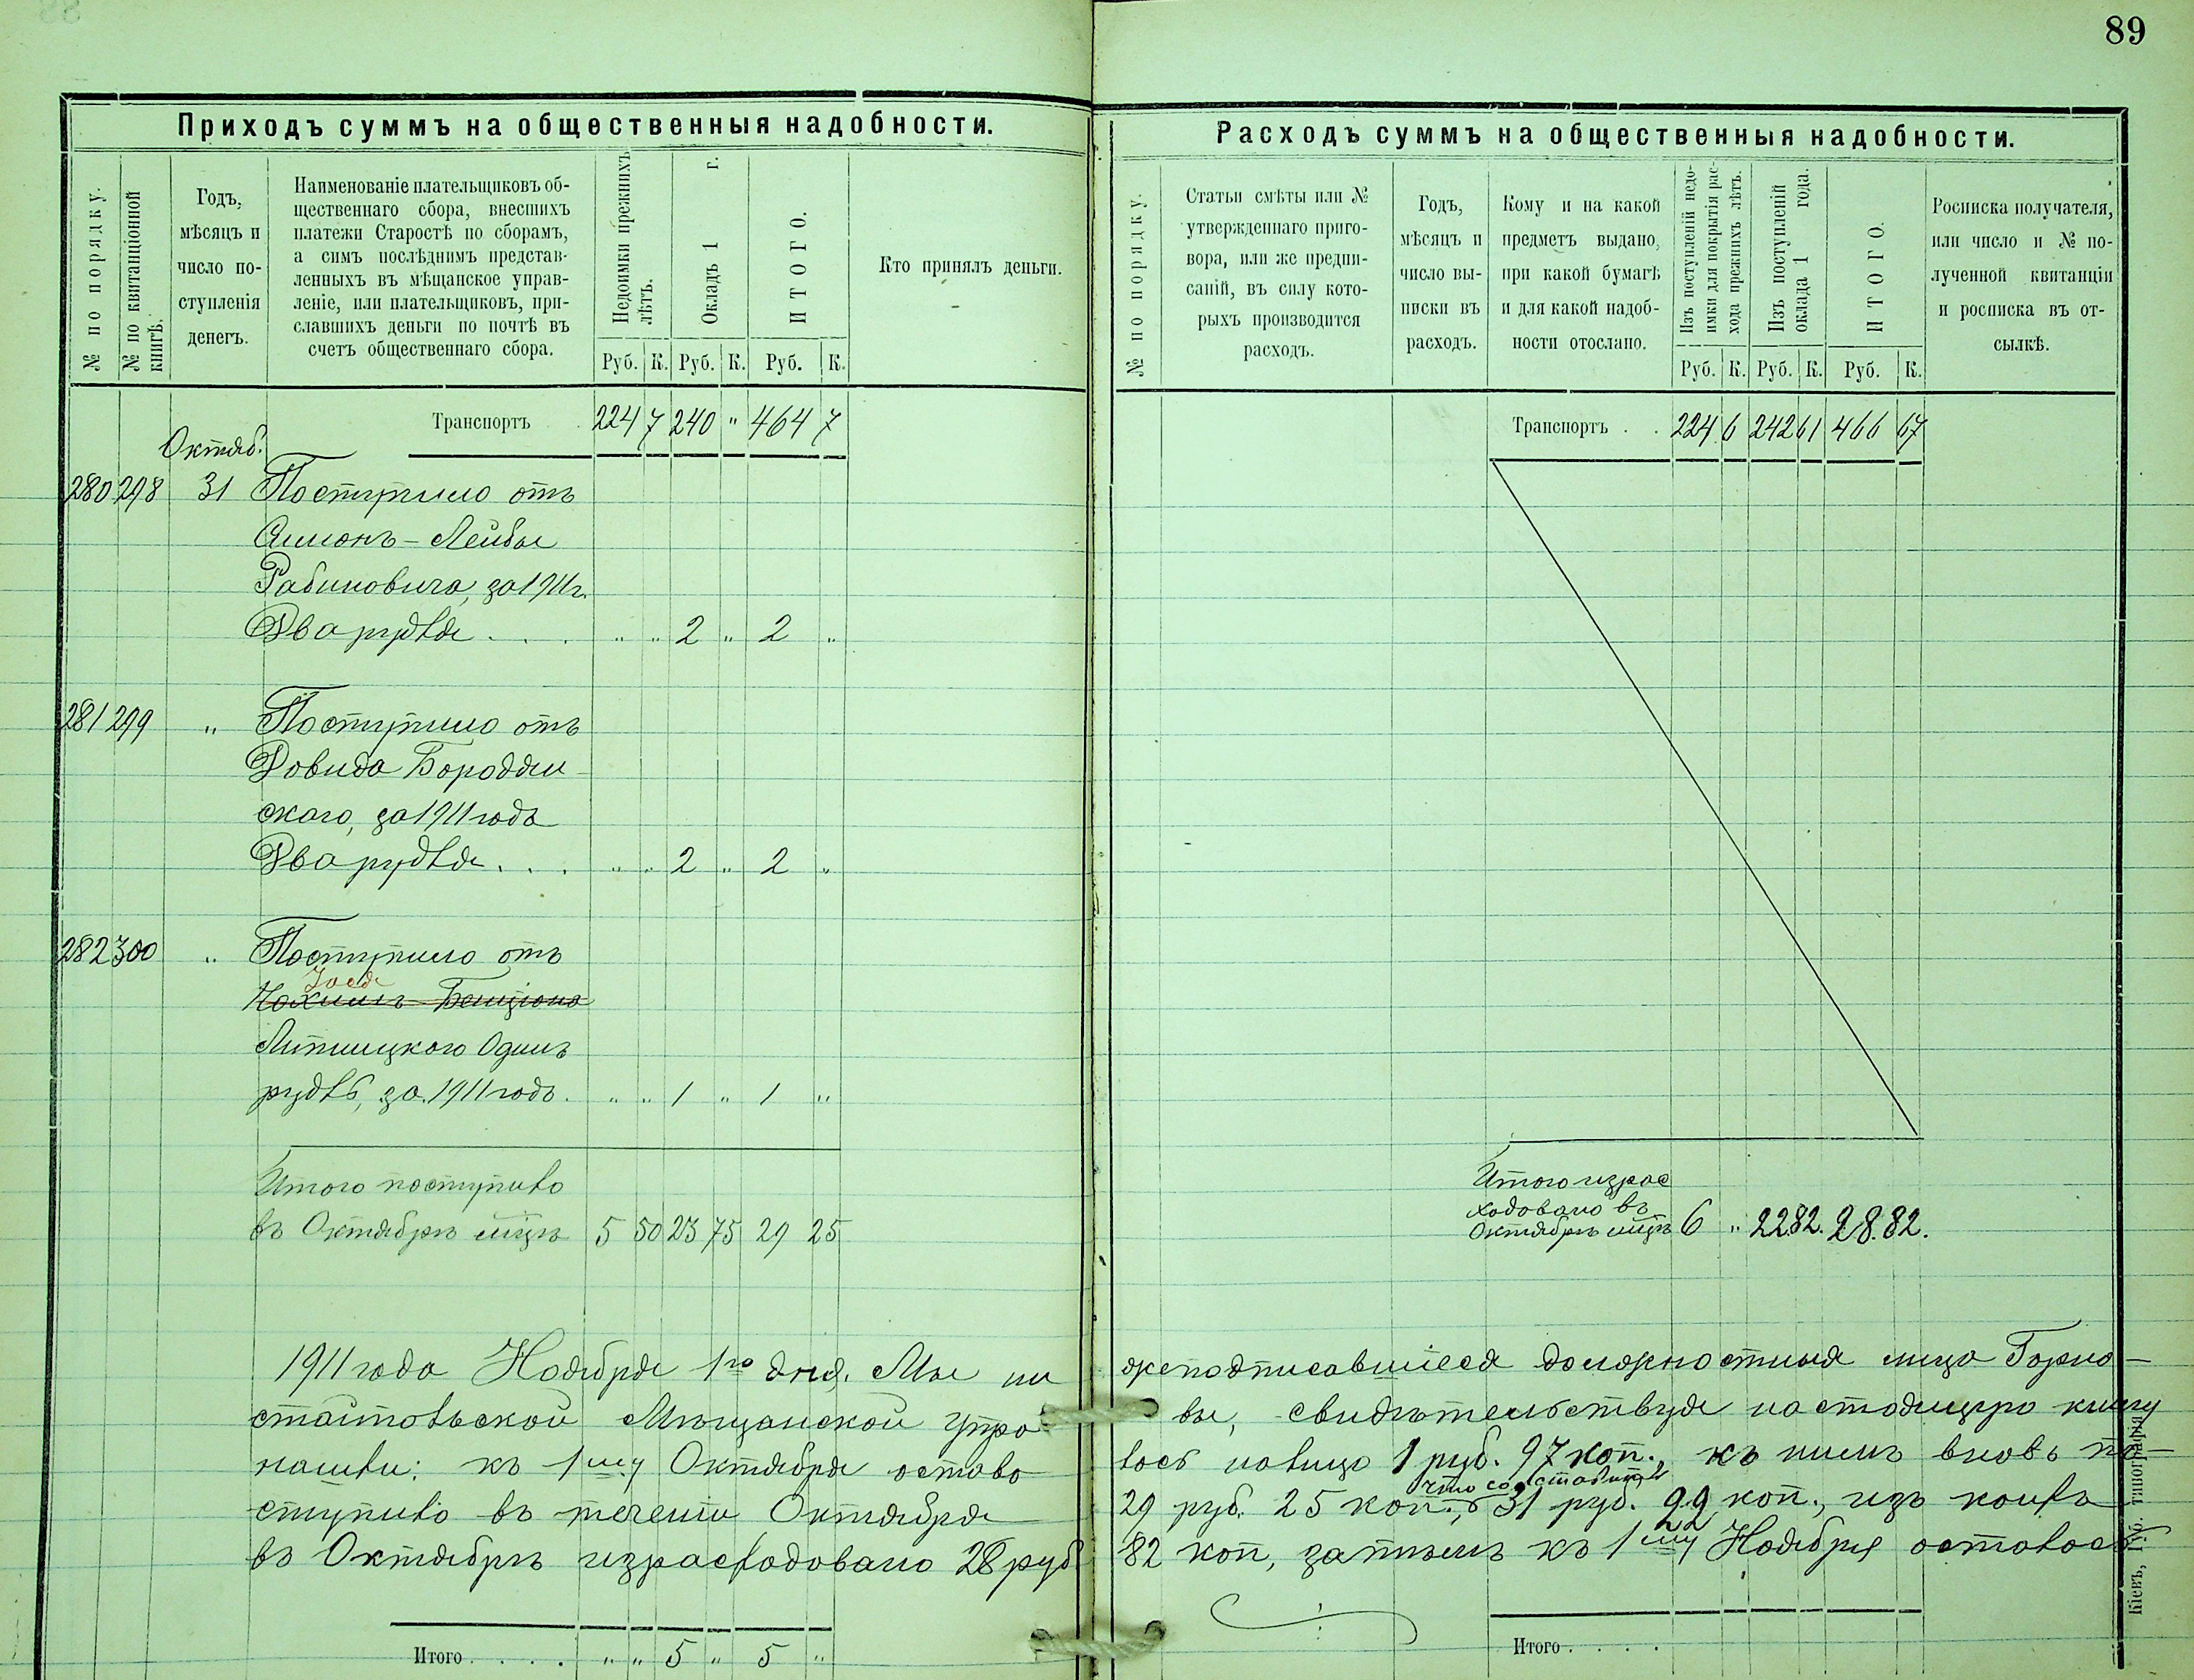 89
Приходъ суммъ на общественныя надобности.
№ по порядку.
№ по квитанціонной книгѣ.
Годъ,
мѣсяцъ и
число по-
ступленія
денегъ.
Наименованіе плательщиковъ об-
щественнаго сбора, внесшихъ
платежи Старостѣ по сборамъ,
а симъ послѣднимъ представ-
ленныхъ въ мѣщанское управ-
леніе, или плательщиковъ, при-
славшихъ деньги по почтѣ въ
счетъ общественнаго сбора.
Недоимки прежнихъ
лѣтъ.
Окладъ 1 г.
ИТОГО.
Руб. К. Руб. К. Руб. К.
Кто принялъ деньги.
Транспортъ 224 7 240 " 464 7
Октяб.
280 298 31 Поступило отъ
Симонъ-Лейбы
Рабиновича, за 1911 г.
Два рубля . . . " " 2 " 2 "
281 299 " Поступило отъ
Довида Бородян-
ского, за 1911 годъ
Два рубля . . . " " 2 " 2 "
282 300 " Поступило отъ
Нахимъ Бенціона
Липницкого Одинъ
рубль, за 1911 годъ. " " 1 " 1 "
Итого поступило
въ Октябрѣ мцѣ 5 50 23 75 29 25
1911 года Ноября 1го дня. Мы ни
стайпольской Мѣщанской Упра
нашли: къ 1му Октября остава
ступило въ теченіи Октября
въ Октябрѣ израсходовано 28 руб
Итого . . . . " " 5 " 5 "
Расходъ суммъ на общественныя надобности.
№ по порядку.
Статьи смѣты или №
утвержденнаго приго-
вора, или же предпи-
саній, въ силу кото-
рыхъ производится
расходъ.
Годъ,
мѣсяцъ и
число вы-
писки въ
расходъ.
Кому и на какой
предметъ выдано,
при какой бумагѣ
и для какой надоб-
ности отослано.
Изъ поступленій недо-
имки для покрытія рас-
хода прежнихъ лѣтъ.
Изъ поступленій
оклада 1 года.
ИТОГО.
Руб. К. Руб. К. Руб. К.
Росписка получателя,
или число и № по-
лученной квитанціи
и росписка въ от-
сылкѣ.
Транспортъ . . 224 6 242 61 466 67
Итого израс
ходовано въ
Октябрѣ мцѣ 6 " 22 82. 28. 82.
жеподписавшіеся должностныя лица Горно-
вы, свидѣтельствуя настоящую книгу
лось налицо 1 руб. 97 коп., къ нимъ вновь по-
что составитъ
29 руб. 25 коп., 31 руб. 22 коп., изъ коихъ
82 коп, затѣмъ къ 1му Ноября осталось
Итого . . . .
Кіевъ, типографія